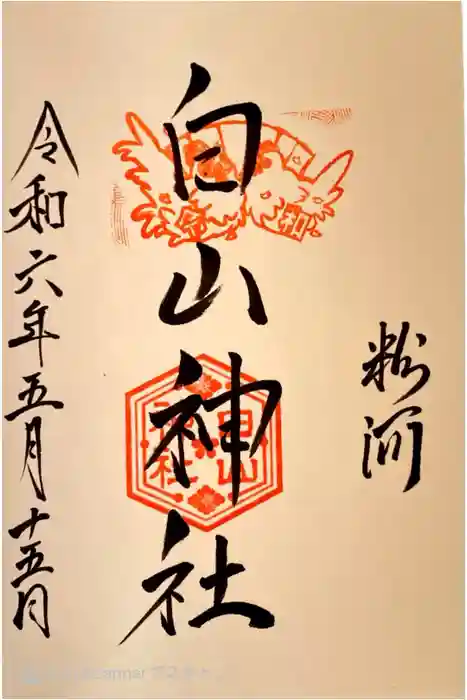 粉河
白山神社
令和六年五月十五日
白山
神社